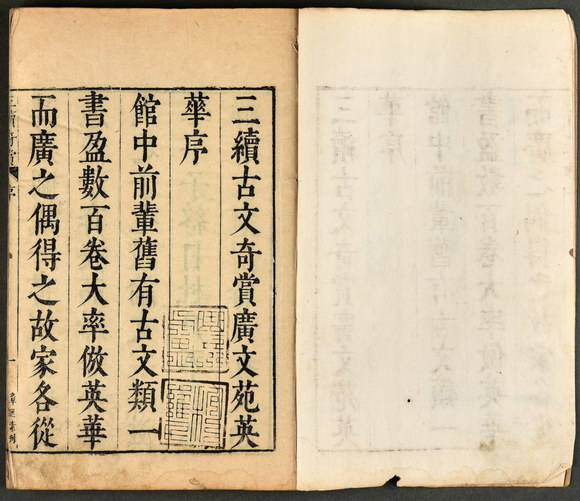 三續古文奇賞廣文苑英
華序
館中前輩舊有古文類一
書盈數百卷大率倣英華
而廣之偶得之故家各從
三續奇賞 序 一